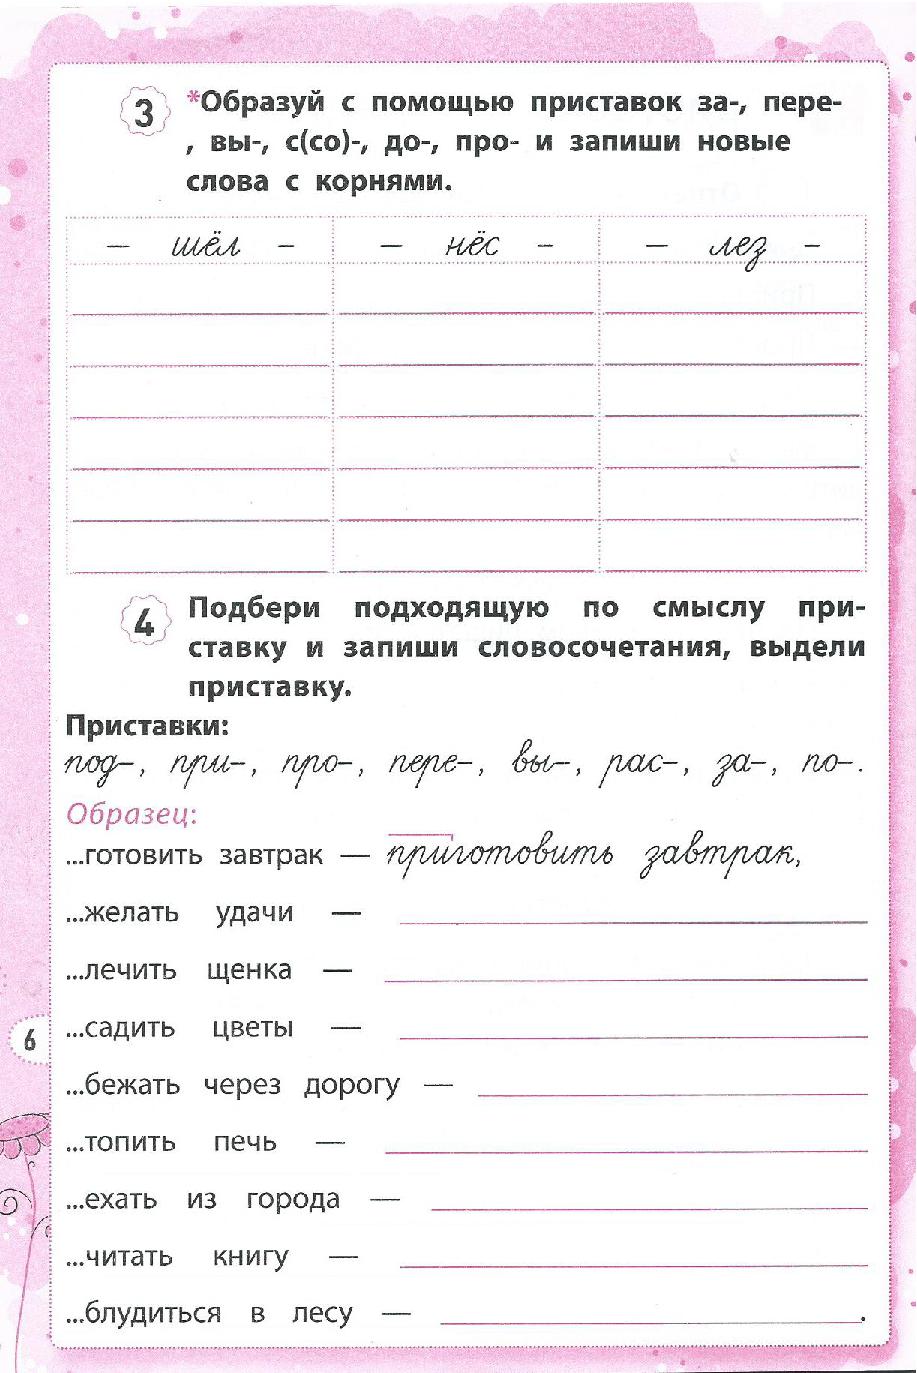 3 *Образуй с помощью приставок за-, пере-
, вы-, с(со)-, до-, про- и запиши новые
слова с корнями.
– шёл – – нёс – – лез –
4 Подбери подходящую по смыслу при-
ставку и запиши словосочетания, выдели
приставку.
Приставки:
под–, при–, про–, пере–, вы–, рас–, за–, по–.
Образец:
...готовить завтрак — приготовить завтрак,
...желать удачи —
...лечить щенка —
...садить цветы —
6
...бежать через дорогу —
...топить печь —
...ехать из города —
...читать книгу —
...блудиться в лесу — .